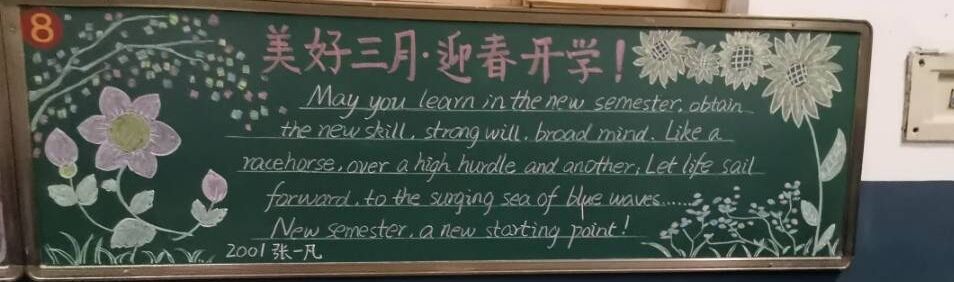 8
美好三月·迎春开学!
May you learn in the new semester, obtain
the new skill, strong will, broad mind. Like a
racehorse, over a high hurdle and another; Let life sail
forward, to the surging sea of blue waves......
New semester, a new starting point!
2001 张一凡